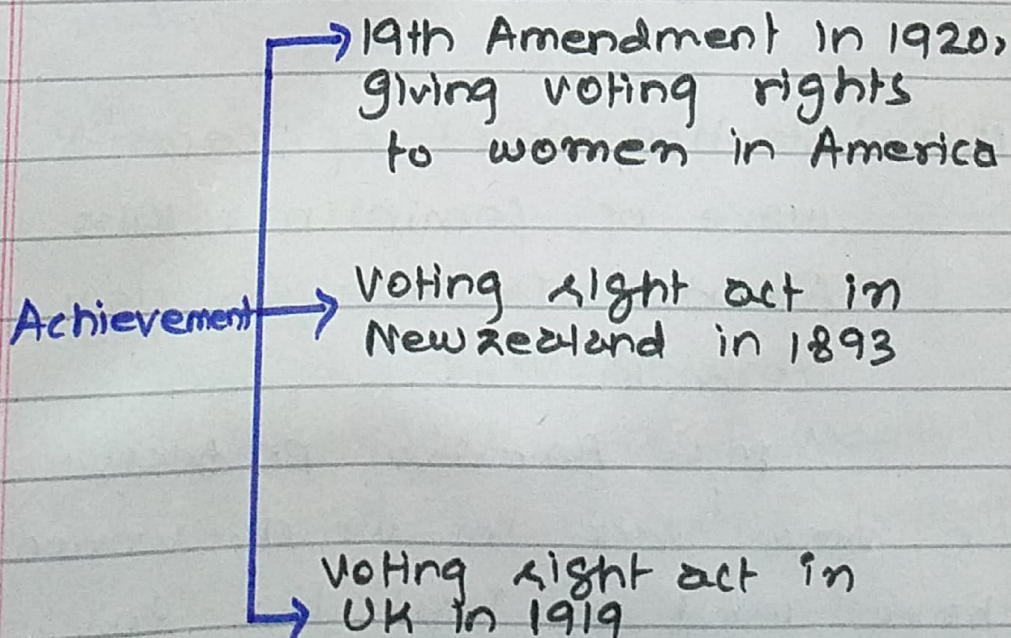 19th Amendment in 1920,
giving voting rights
to women in America
Achievement
Voting right act in
New zealand in 1893
Voting right act in
UK in 1919